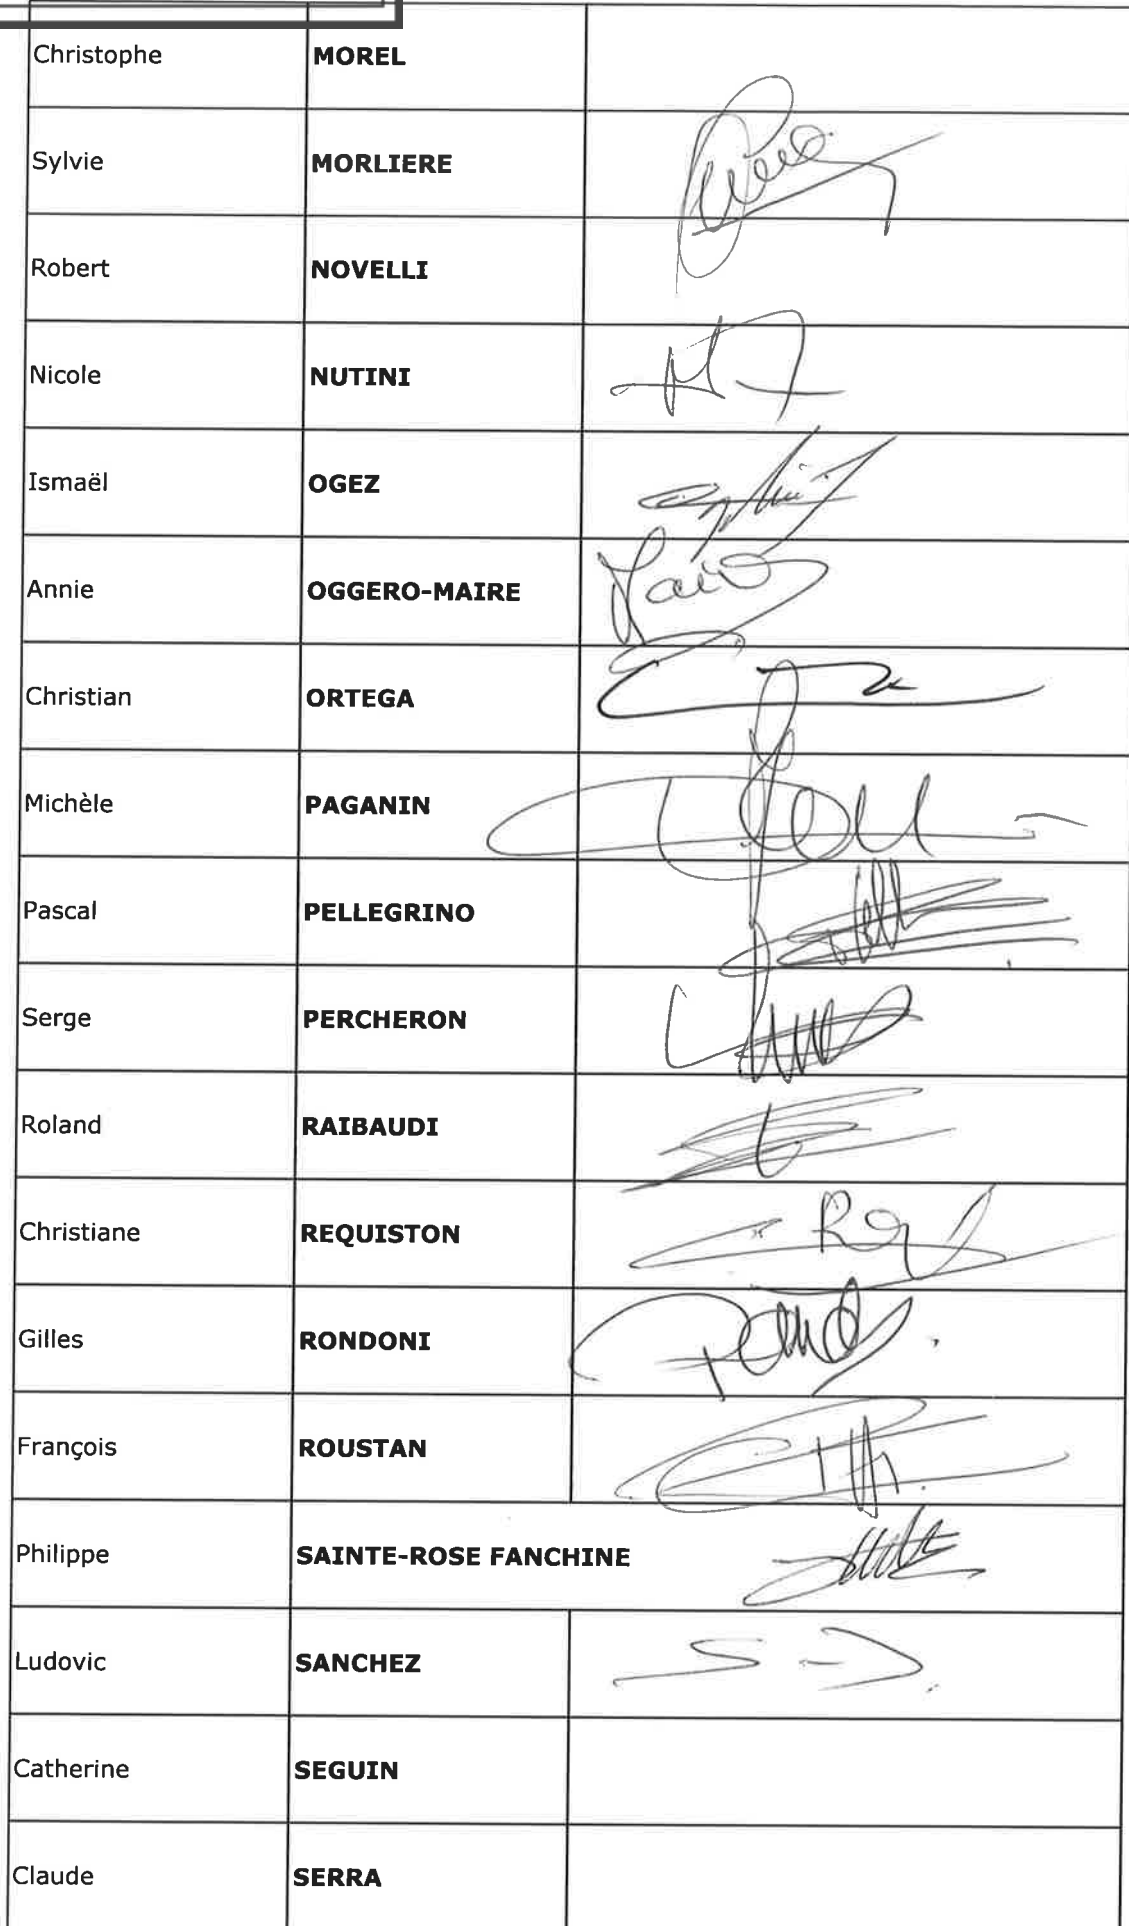 Christophe MOREL
Sylvie MORLIERE
Robert NOVELLI
Nicole NUTINI
Ismaël OGEZ
Annie OGGERO-MAIRE
Christian ORTEGA
Michèle PAGANIN
Pascal PELLEGRINO
Serge PERCHERON
Roland RAIBAUDI
Christiane REQUISTON
Gilles RONDONI
François ROUSTAN
Philippe SAINTE-ROSE FANCHINE
Ludovic SANCHEZ
Catherine SEGUIN
Claude SERRA